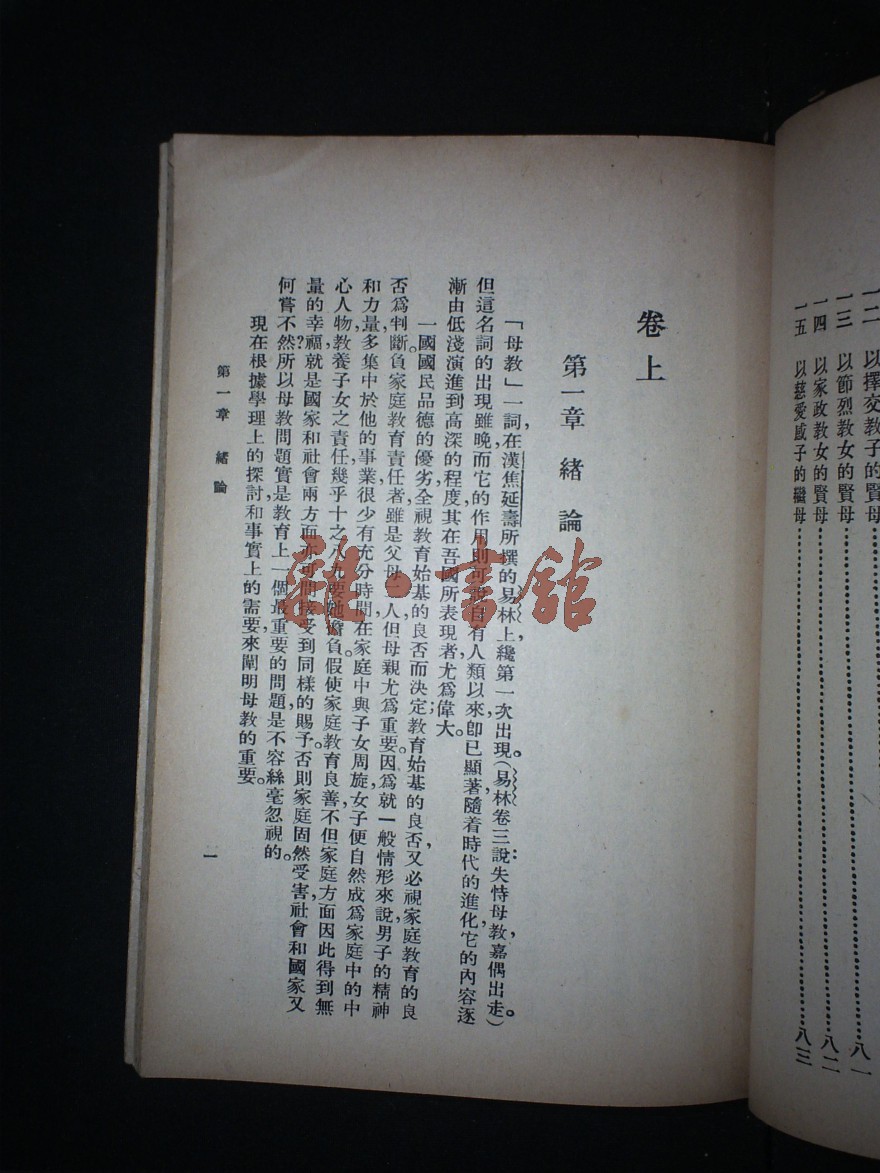 一二　以擇交教子的賢母……八一
一三　以節烈教女的賢母
一四　以家政教女的賢母……八二
一五　以慈愛感子的繼母……八三
卷上
第一章　緒論
「母教」一詞，在漢焦延壽所撰的易林上，纔第一次出現。（易林卷三說：失恃母教，嘉偶出走。）
但這名詞的出現雖晚，而它的作用則可說自有人類以來，卽已顯著，隨着時代的進化，它的內容逐
漸由低淺演進到高深的程度，其在吾國所表現者，尤爲偉大。
一國國民品德的優劣，全視教育始基的良否而決定；教育始基的良否，又必視家庭教育的良
否爲判斷。負家庭教育責任者，雖是父母二人，但母親尤爲重要。因爲就一般情形來說，男子的精神
和力量，多集中於他的事業，很少有充分時間在家庭中與子女周旋，女子便自然成爲家庭中的中
心人物，教養子女之責任，幾乎十之八九要她擔負。假使家庭教育良善，不但家庭方面因此得到無
量的幸福，就是國家和社會兩方面，亦可間接受到同樣的賜予。否則家庭固然受害，社會和國家又
何嘗不然？所以母教問題，實是教育上一個最重要的問題，是不容絲毫忽視的。
現在根據學理上的探討，和事實上的需要，來闡明母教的重要。
第一章　緒論
一
雜·書館